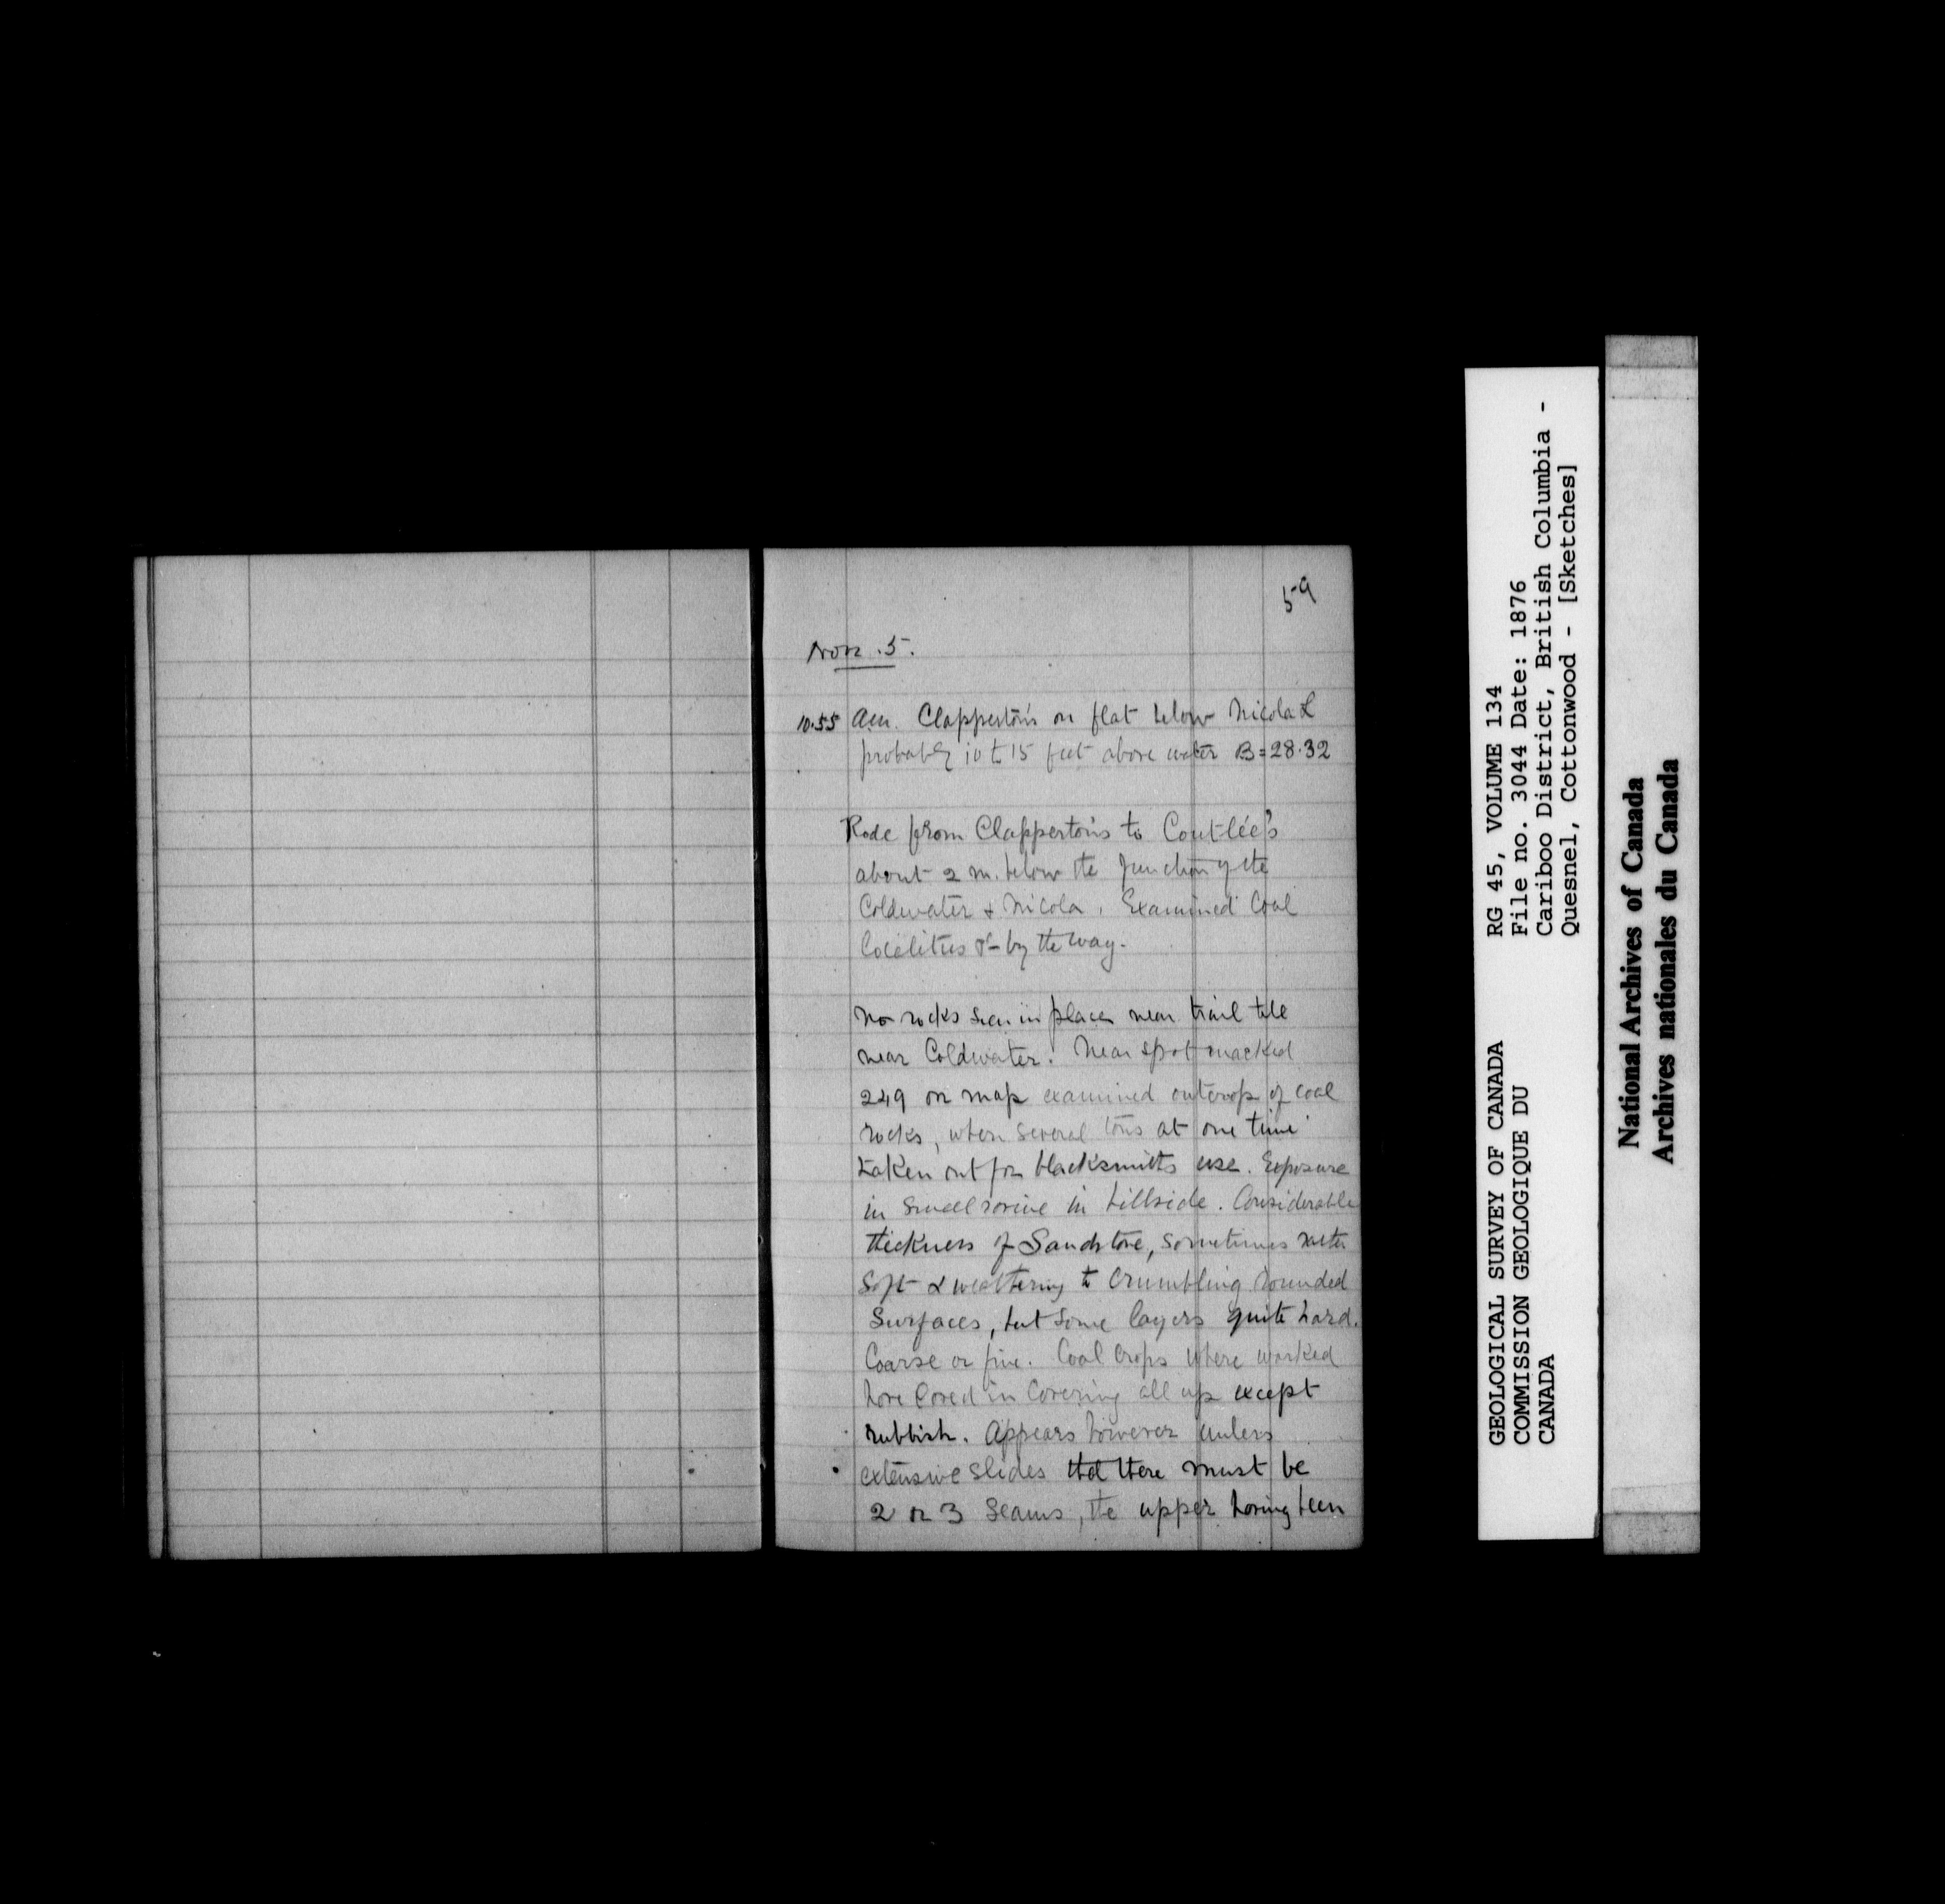 59
Nov. 5.
10.55 am. Clapperton's on flat below Nicola L
probably 10 to 15 feet above water B=28.32
Rode from Clapperton's to Coutlée's
about 2 m. below the junction of the
Coldwater & Nicola. Examined Coal
localities &c by the way.
No rocks seen in place near trail till
near Coldwater. Near spot marked
249 on map examined outcrop of coal
rocks, where several tons at one time
taken out for blacksmiths use. Exposure
in small ravine in hillside. Considerable
thickness of Sandstone, sometimes rather
soft & weathering to crumbling rounded
surfaces, but some layers quite hard.
Coarse or fine. Coal crops where worked
have caved in covering all up except
rubbish. Appears however unless
extensive slides that there must be
2 or 3 seams, the upper having been
GEOLOGICAL SURVEY OF CANADA
COMMISSION GEOLOGIQUE DU
CANADA
RG 45, VOLUME 134
File no. 3044 Date: 1876
Cariboo District, British Columbia -
Quesnel, Cottonwood - [Sketches]
National Archives of Canada
Archives nationales du Canada